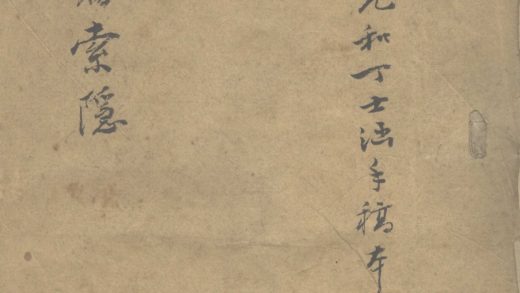 元和丁士涵手稿本
索隱